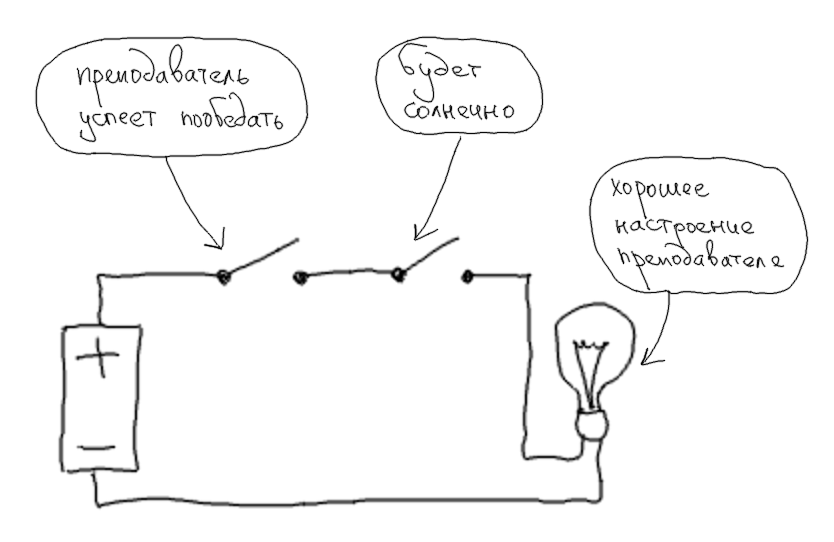 преподаватель
успеет пообедать
будет
солнечно
хорошее
настроение
преподавателя
+
−